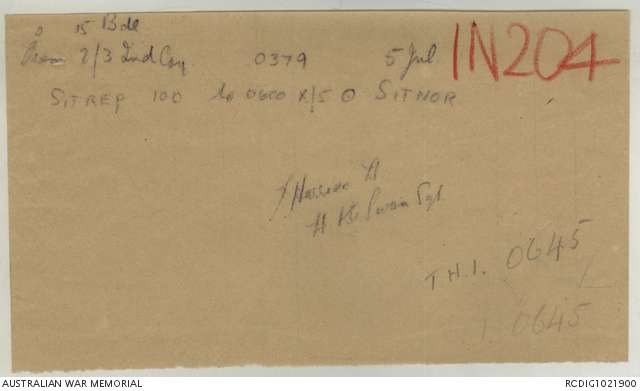 o 15 Bde
From 2/3 Ind Coy 0379 5 Jul IN204
SITREP 100 to 0600 K/5 ⊙ SITNOR
H
H. Sgt
T.H.I. 0645
0645
AUSTRALIAN WAR MEMORIAL RCDIG1021900